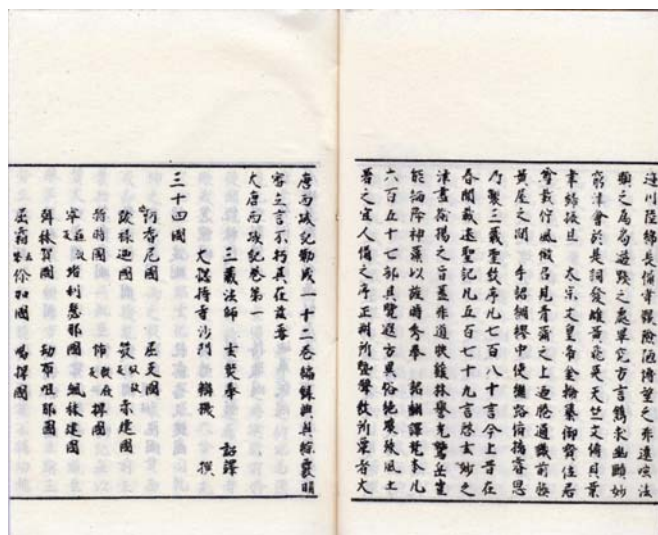 逾川陸綿長備嘗艱險陋博望之非遠嗤法
顯之為局遊踐之處畢究方言鐫求幽賾妙
窮津會於是詞發雄黃飛英天竺文傳貝葉
聿歸振旦 太宗文皇帝金輪纂御寶位居
尊載佇風徽召見青蒲之上迺眷通識前膝
黃屋之間 手詔綢繆中使繼路俯摛睿思
乃製三藏聖教序凡七百八十言今上昔在
春闈裁述聖記凡五百七十九言啓玄妙之
津書揄揚之旨蓋非道映雞林譽光鷲岳豈
能緬降神藻以旌時秀奉 詔翻譯梵本凡
六百五十七部具覽遐方異俗絕壤殊風土
著之宜人倫之序正朔所暨聲教所覃著大
唐西域記勒成一十二卷編錄典奧綜覈明
審立言不朽其在茲焉
大唐西域記卷第一
三藏法師 玄奘奉 詔譯
大總持寺沙門 辯機 撰
三十四國
阿耆尼國 屈支國
跋祿迦國 笯赤建國
赭時國 捍國
窣堵利瑟那國 颯秣建國
弭秣賀國 劫布呾那國
屈霜迦國 喝捍國